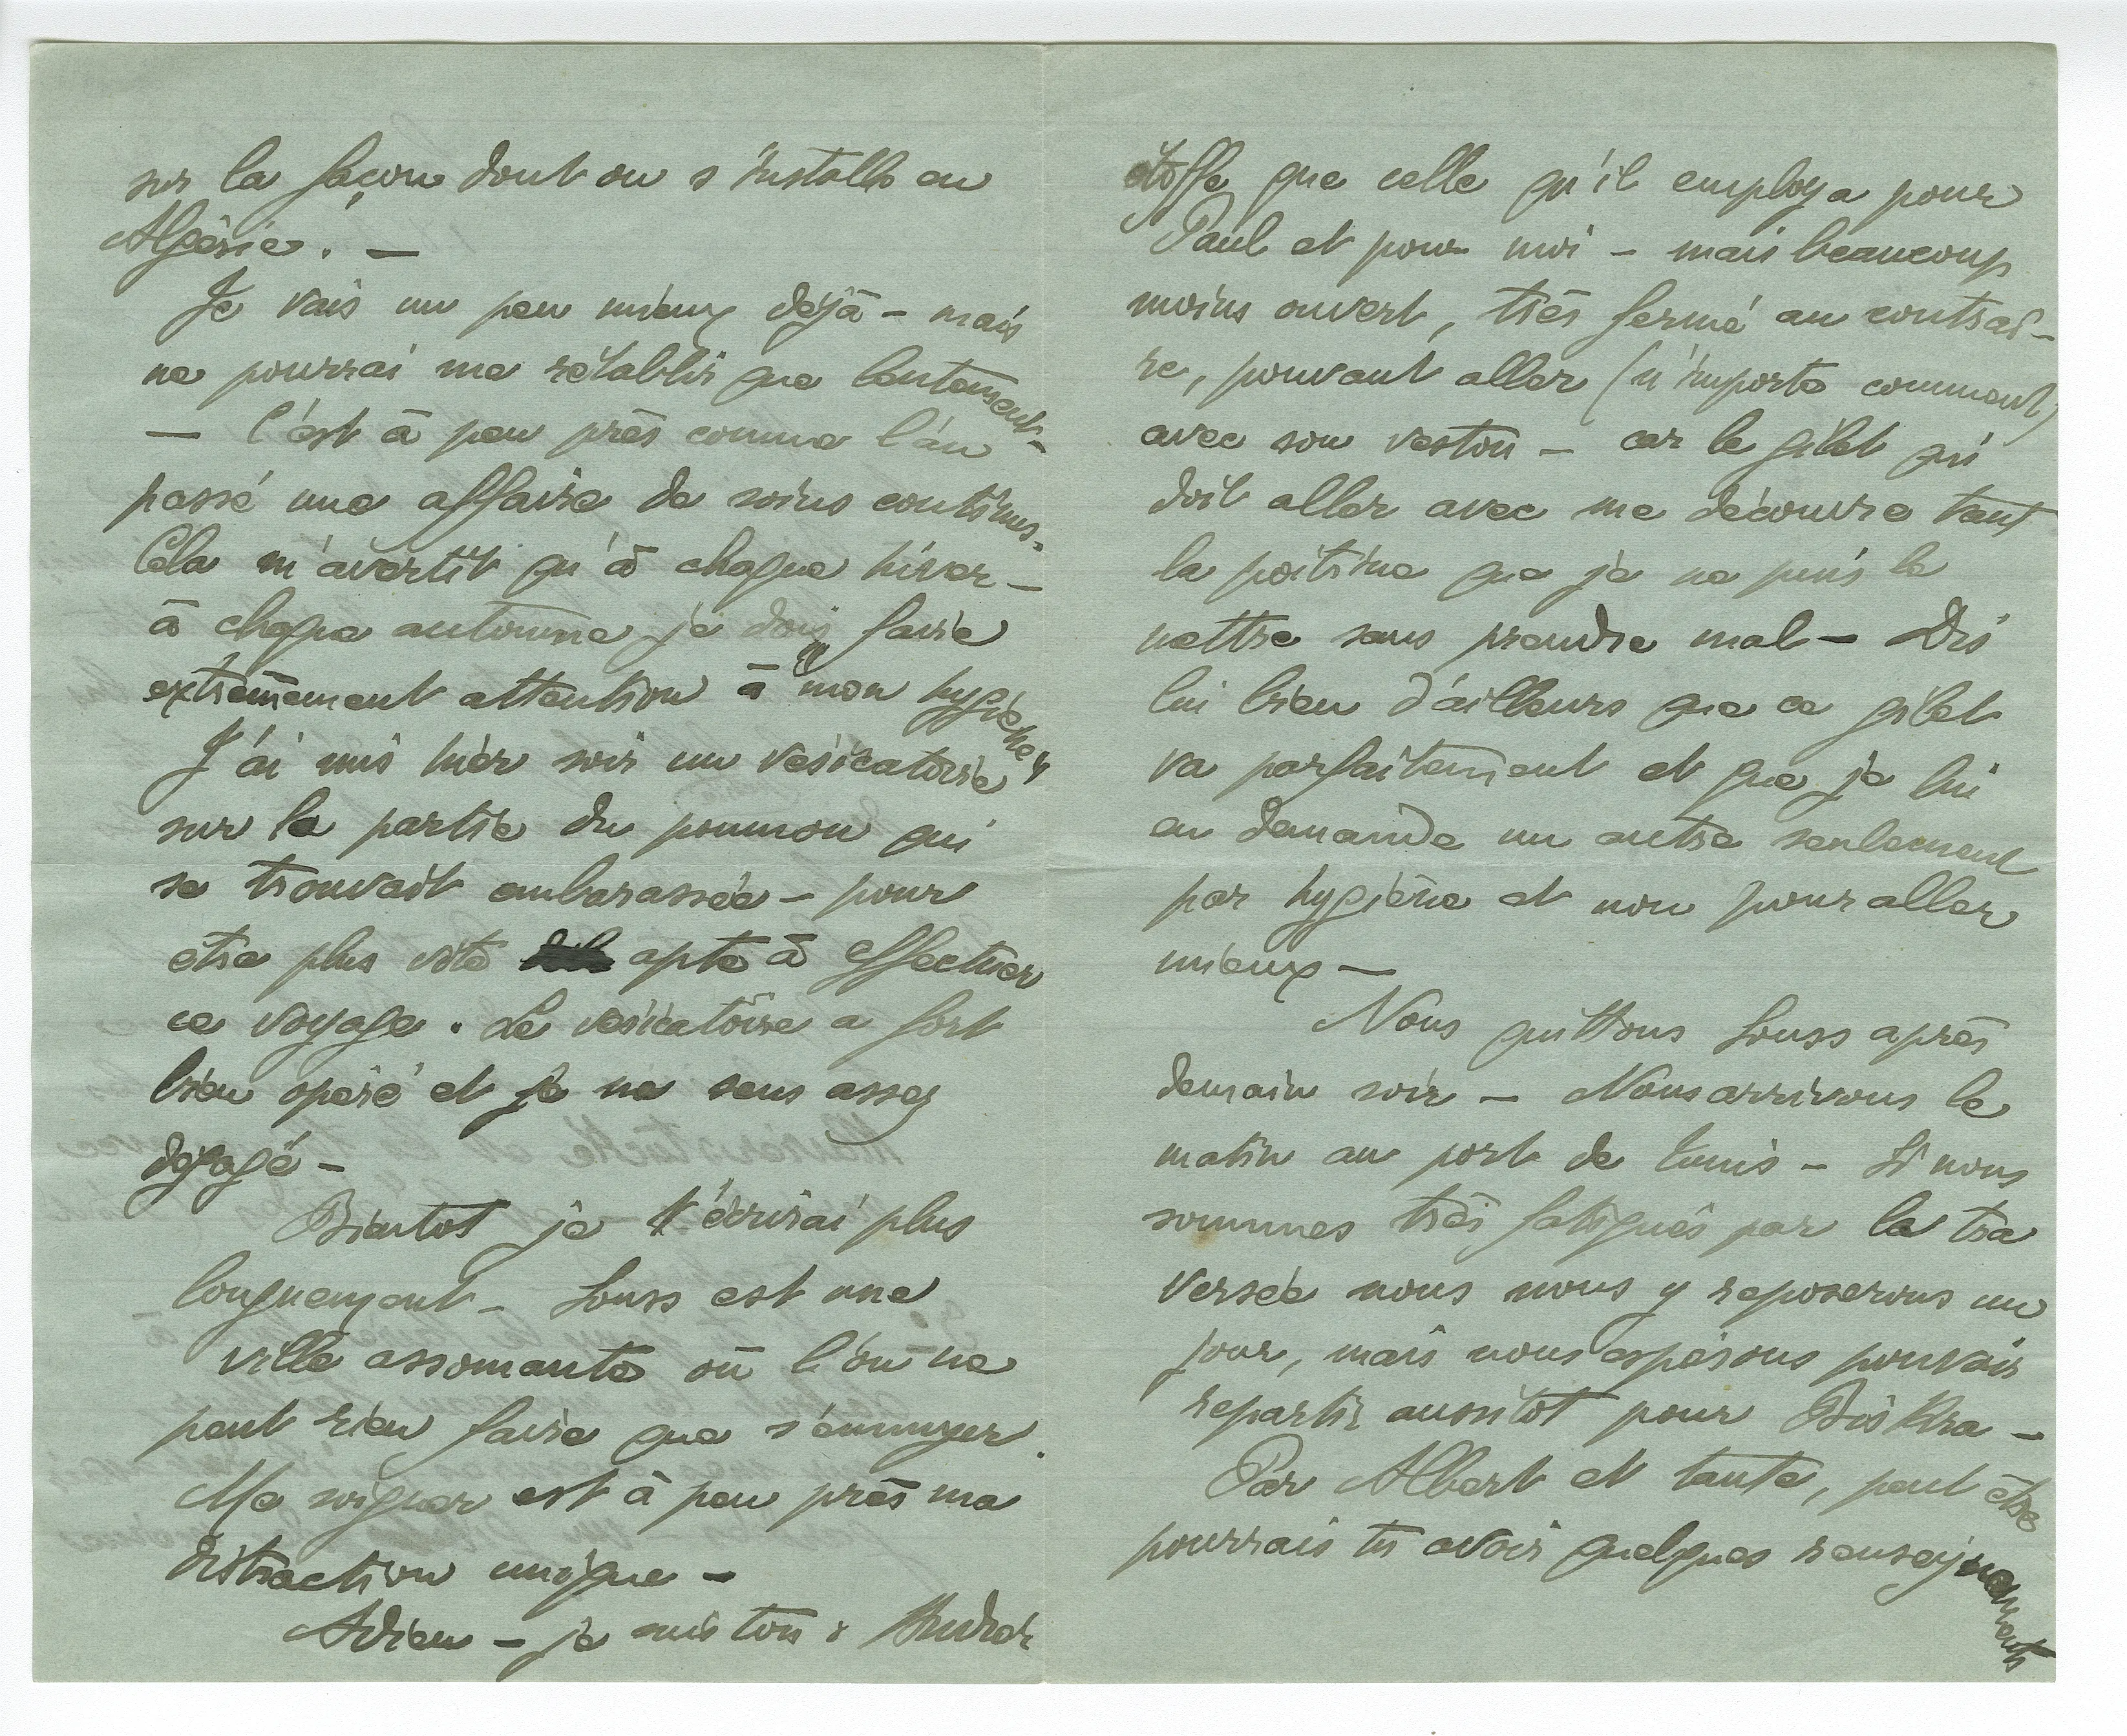 sur la façon dont on s'installe en
Algérie. —
Je vais un peu mieux déjà - mais
ne pourrai me rétablir que lentement -
— C'est à peu près comme l'an
passé une affaire de soins continus.
Cela m'avertit qu'à chaque hiver —
à chaque automne je dois faire
extrêmement attention à mon hygiène
J'ai mis hier soir un vésicatoire
sur la partie du poumon qui
se trouvait embarassée - pour
etre plus vite apte à effectuer
ce voyage. Le vésicatoire a fort
bien opéré et je me sens assez
dégagé -
Bientot je t'écrirai plus
longuement - Souss est une
ville assomante où l'on ne
peut rien faire que s'ennuyer.
Me soigner est à peu près ma
distraction unique -
Adieu - je suis ton : André
étoffe que celle qu'il employa pour
Paul et pour moi - mais beaucoup
moins ouvert, très fermé au contrai-
re, pouvant aller (n'importe comment)
avec son veston - car le gilet qui
doit aller avec me découvre tant
la poitrine que je ne puis le
mettre sans prendre mal - Dis
lui bien d'ailleurs que ce gilet
va parfaitement et que je lui
en demande un autre seulement
par hygiène et non pour aller
mieux —
Nous quittons Souss après
demain soir - Nous arrivons le
matin au port de Tunis - Si nous
sommes très fatigués par la tra
versée nous nous y reposerons un
jour, mais nous espérons pouvoir
repartir aussitot pour Biskra -
Par Albert et tante, peut être
pourrais tu avoir quelques renseignements